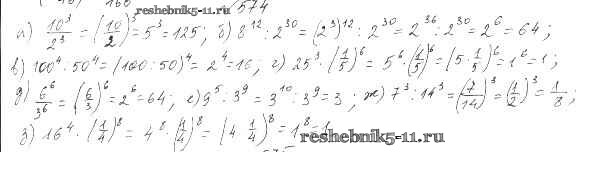 574
www.reshebnik5-11.ru
а) 10³/2³ = (10/2)³ = 5³ = 125; б) 8¹² : 2³⁰ = (2³)¹² : 2³⁰ = 2³⁶ : 2³⁰ = 2⁶ = 64;
в) 100⁴ : 50⁴ = (100 : 50)⁴ = 2⁴ = 16; г) 25³ · (1/5)⁶ = 5⁶ · (1/5)⁶ = (5 · 1/5)⁶ = 1⁶ = 1;
д) 6⁶/3⁶ = (6/3)⁶ = 2⁶ = 64; е) 9⁵ : 3⁹ = 3¹⁰ : 3⁹ = 3; ж) 7³ : 14³ = (7/14)³ = (1/2)³ = 1/8;
з) 16⁴ · (1/4)⁸ = 4⁸ · (1/4)⁸ = (4 · 1/4)⁸ = 1⁸ = 1
www.reshebnik5-11.ru